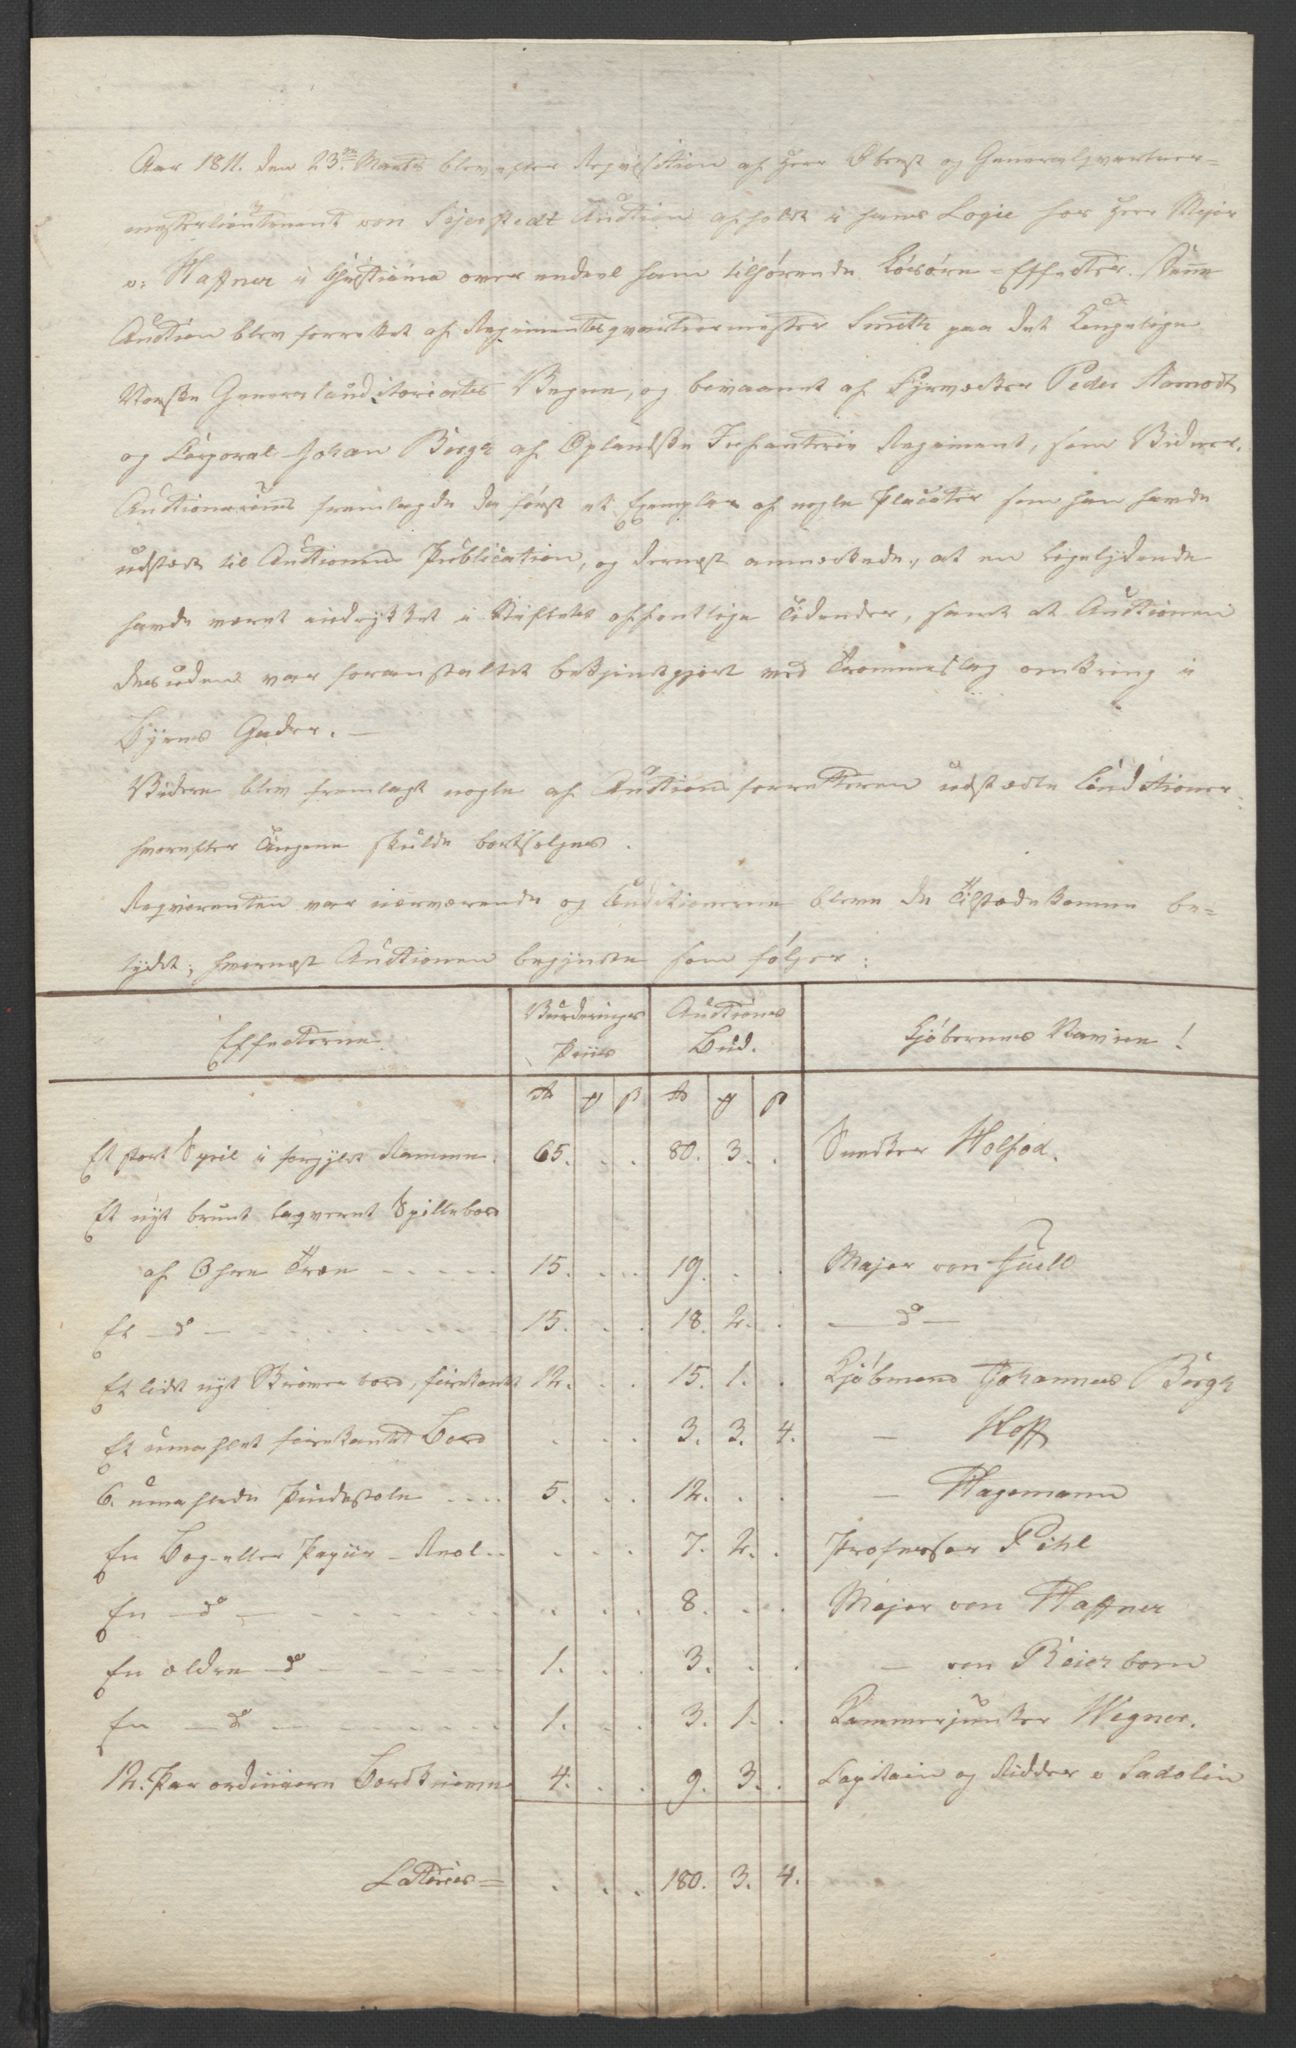 Aar 1811. den 23de Marts blev efter Reqvisition af Herr Oberst og Generalqvarteer-
mesterlieutenant von Sejerstedt Auction afholdt i hans Logie hos Herr Major
v. Haffner i Christiania over endeel ham tilhørende Løsøre-Effecter. Denne
Auction blev forrettet af Regimentsqvarteermester Smith paa det Kongelige
Norske Generalauditoriats Vegne, og bivaanet af Fyrværker Peder Aamodt
og Corporal Johan Bergh af Oplandske Infanterie Regiment, som Vidner.
Auctionarius fremlagde da først et Exemplar af nogle Placater som han havde
udstædt til Auctionens Publication, og dernæst anmærkede, at en ligelydende
havde været indrykket i Stiftets offentlige Tidender, samt at Auctionen
desuden var foranstaltet bekjendtgjort ved Trommeslag omkring i
Byens Gader. —
Videre blev fremlagt nogle af Auctionsforretteren udstædte Conditioner
hvorefter Tingene skulde bortsælges.
Reqvirenten var nærværende og Conditionerne bleve de Tilstædekomne be-
tydet; hvornæst Auctionen begyndte som følger:
Effecterne. Vurderings Priis Auctions Bud. Kjøbernes Navne!
Et stort Speil i forgyldt Ramme. 65. . . 80. 3. . Snedker Holfod.
Et nyt brunt laqveret Spillebord
af Ohre Træe 15. . . 19. . . Major von Juell
Et — do — 15. . . 18. 2. . — do —
Et lidet nyt Skriverbord, firekantet 12. . . 15. 1. . Kjøbmand Johannes Bergh
Et umahlet firekantet Bord . . . 3. 3. 4. — Hoff
6. umahlede Pindestole 5. . . 12. . . — Hagemann
En Bog- eller Papiir-Reol . . . 7. 2. . Professor Pihl
En — do — . . . 8. . . Major von Haffner
En ældre do — 1. . . 3. . . — von Reierborn
En — do — 1. . . 3. 1. . Kammerjunker Wegner.
12. Par ordinaire Bordknive 4. . . 9. 3. . Capitain og Ridder v Sadolin
Lateris = . . . 180. 3. 4.